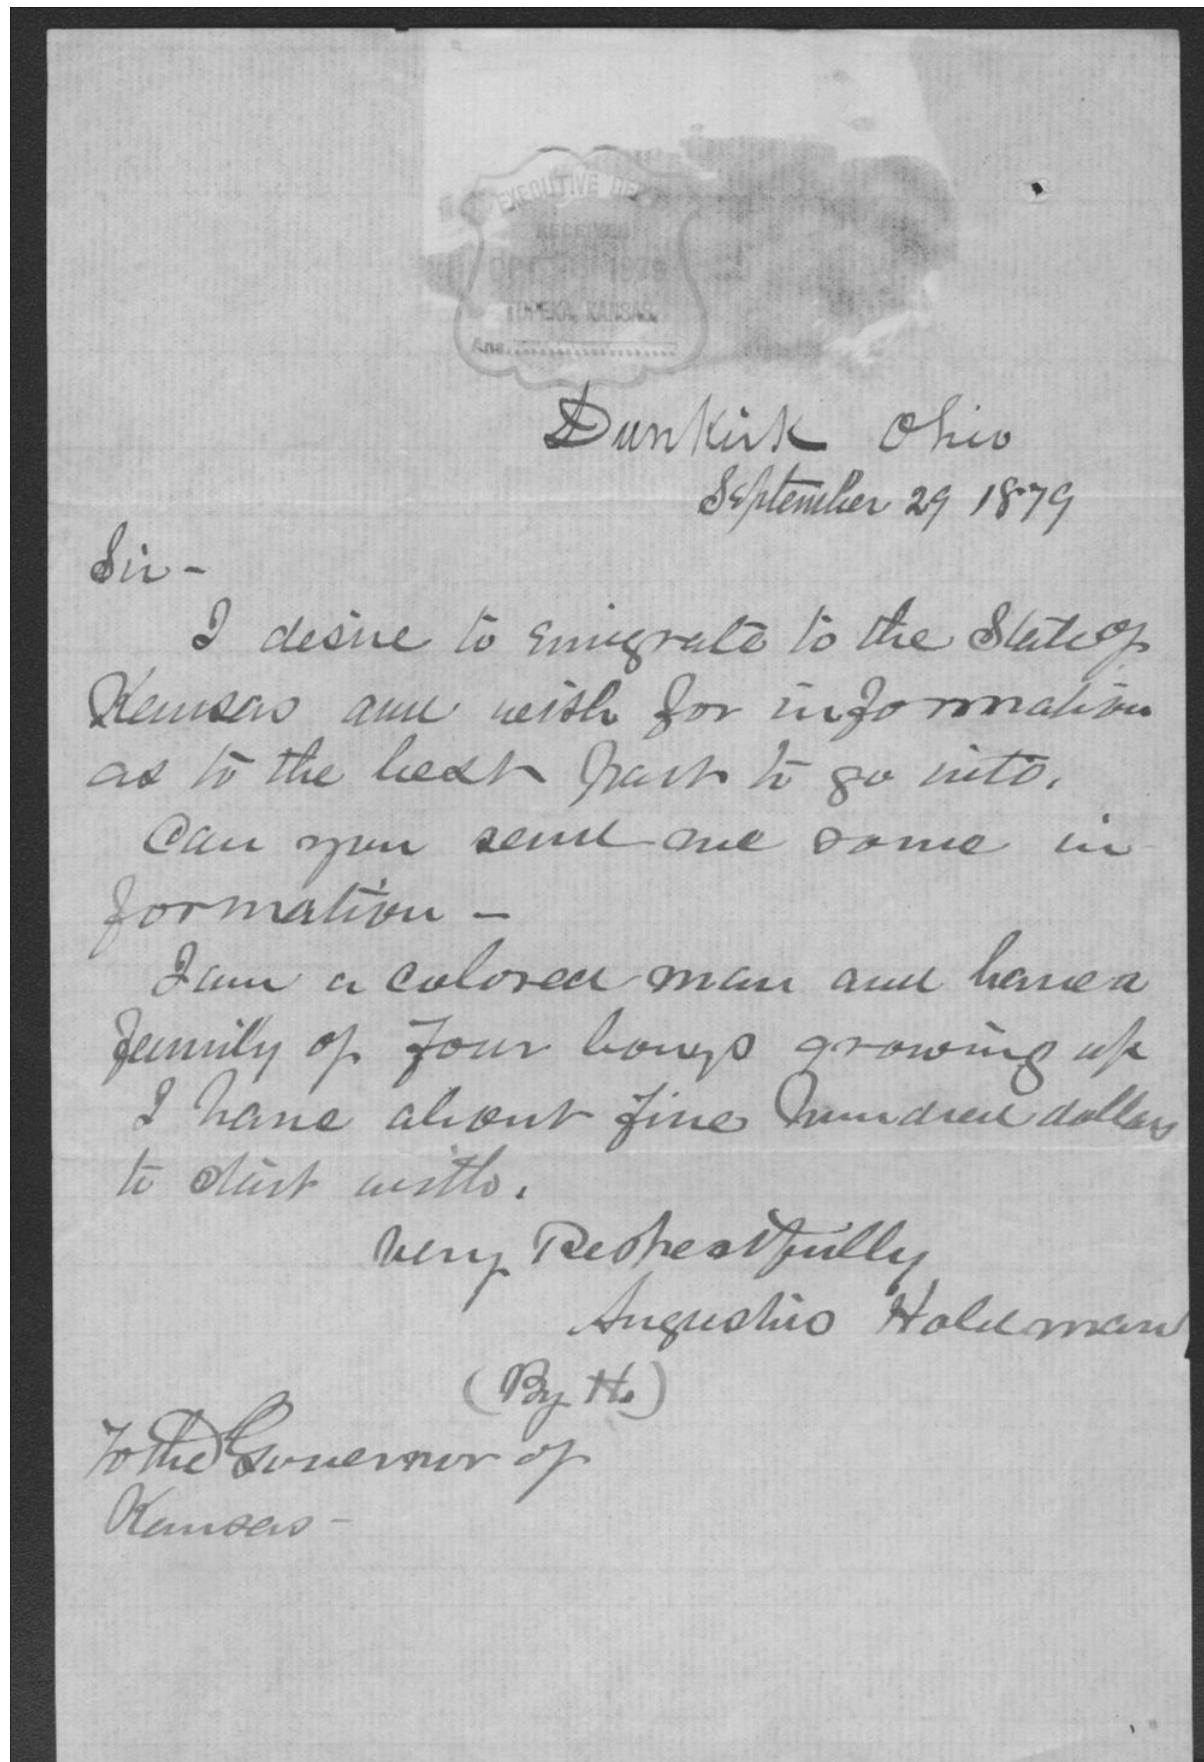 EXECUTIVE DEP
RECEIVED
OCT 1879
TOPEKA, KANSAS.
Ans.
Dunkirk Ohio
September 29 1879
Sir -
I desire to emigrate to the State of
Kansas and wish for information
as to the best part to go into.
Can you send me some in
formation -
I am a colored man and have a
family of four boys growing up
I have about five hundred dollars
to start with.
Very Respectfully
Augustus Holdman
(By H.)
To the Governor of
Kansas -